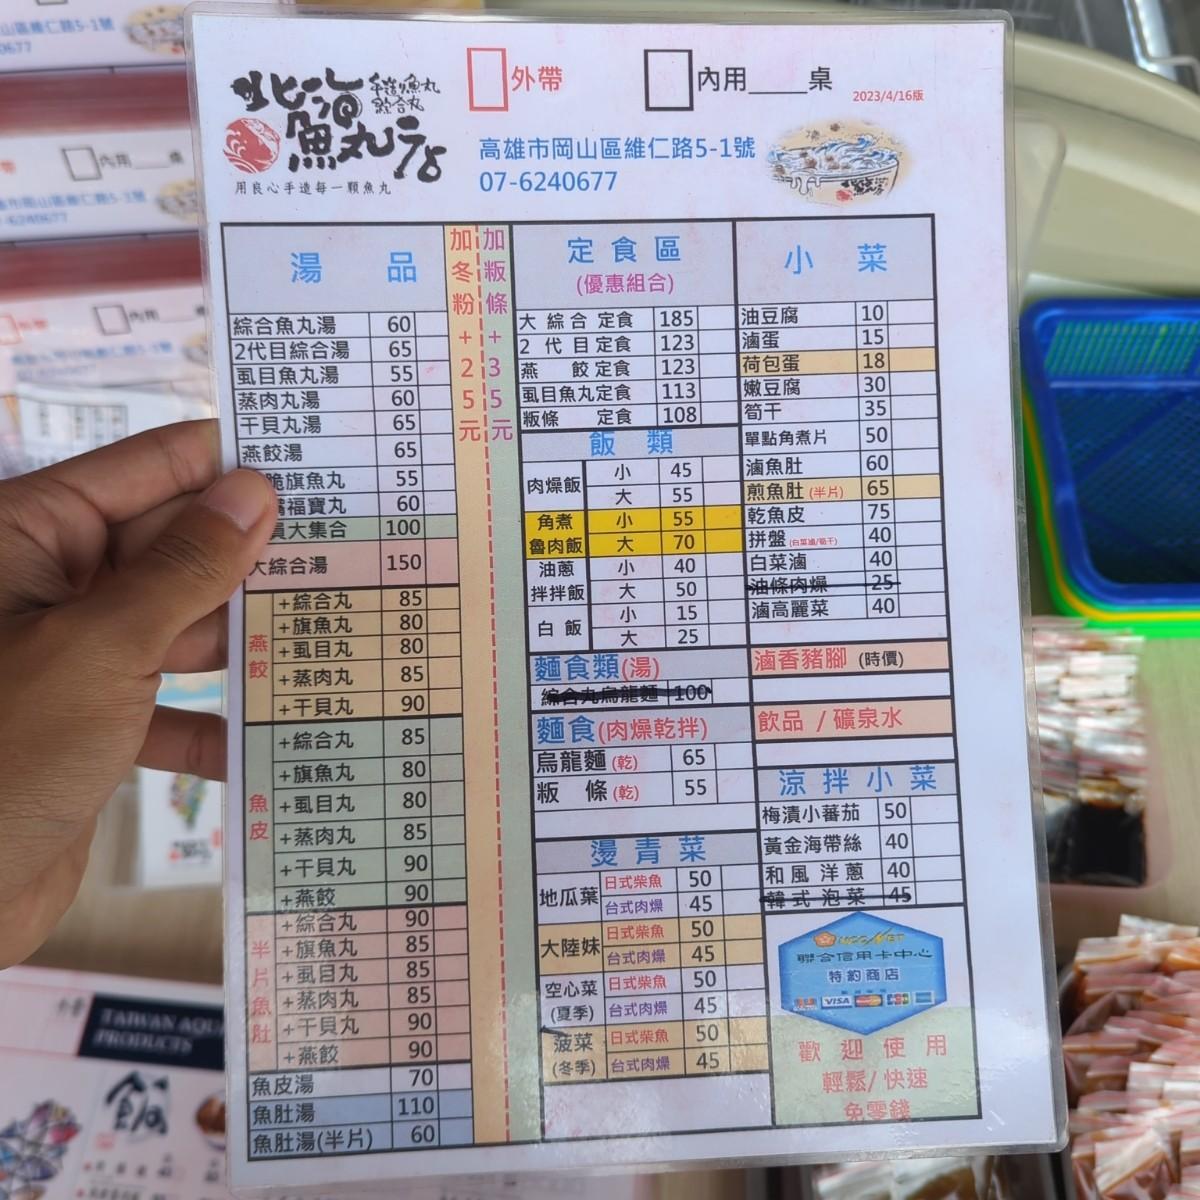 北海魚丸店
手造魚丸
綜合丸
用良心手造每一顆魚丸
外帶
內用____桌
2023/4/16版
高雄市岡山區維仁路5-1號
07-6240677
湯 品
加冬粉+25元
加粄條+35元
綜合魚丸湯 60
2代目綜合湯 65
虱目魚丸湯 55
蒸肉丸湯 60
干貝丸湯 65
燕餃湯 65
脆旗魚丸 55
福寶丸 60
員大集合 100
大綜合湯 150
燕餃
+綜合丸 85
+旗魚丸 80
+虱目丸 80
+蒸肉丸 85
+干貝丸 90
魚皮
+綜合丸 85
+旗魚丸 80
+虱目丸 80
+蒸肉丸 85
+干貝丸 90
+燕餃 90
半片魚肚
+綜合丸 90
+旗魚丸 85
+虱目丸 85
+蒸肉丸 85
+干貝丸 90
+燕餃 90
魚皮湯 70
魚肚湯 110
魚肚湯(半片) 60
定食區
(優惠組合)
大綜合定食 185
2代目定食 123
燕餃定食 123
虱目魚丸定食 113
粄條 定食 108
飯 類
肉燥飯 小 45
大 55
角煮魯肉飯 小 55
大 70
油蔥拌拌飯 小 40
大 50
白飯 小 15
大 25
麵食類(湯)
綜合丸烏龍麵 100
麵食(肉燥乾拌)
烏龍麵(乾) 65
粄 條(乾) 55
燙青菜
地瓜葉 日式柴魚 50
台式肉燥 45
大陸妹 日式柴魚 50
台式肉燥 45
空心菜(夏季) 日式柴魚 50
台式肉燥 45
菠菜(冬季) 日式柴魚 50
台式肉燥 45
小 菜
油豆腐 10
滷蛋 15
荷包蛋 18
嫩豆腐 30
筍干 35
單點角煮片 50
滷魚肚 60
煎魚肚(半片) 65
乾魚皮 75
拼盤(白菜滷/筍干) 40
白菜滷 40
油條肉燥 25
滷高麗菜 40
滷香豬腳 (時價)
飲品 / 礦泉水
涼拌小菜
梅漬小蕃茄 50
黃金海帶絲 40
和風洋蔥 40
韓式泡菜 45
聯合信用卡中心
特約商店
VISA
歡迎使用
輕鬆/快速
免零錢
TAIWAN AQUA
PRODUCTS
飯